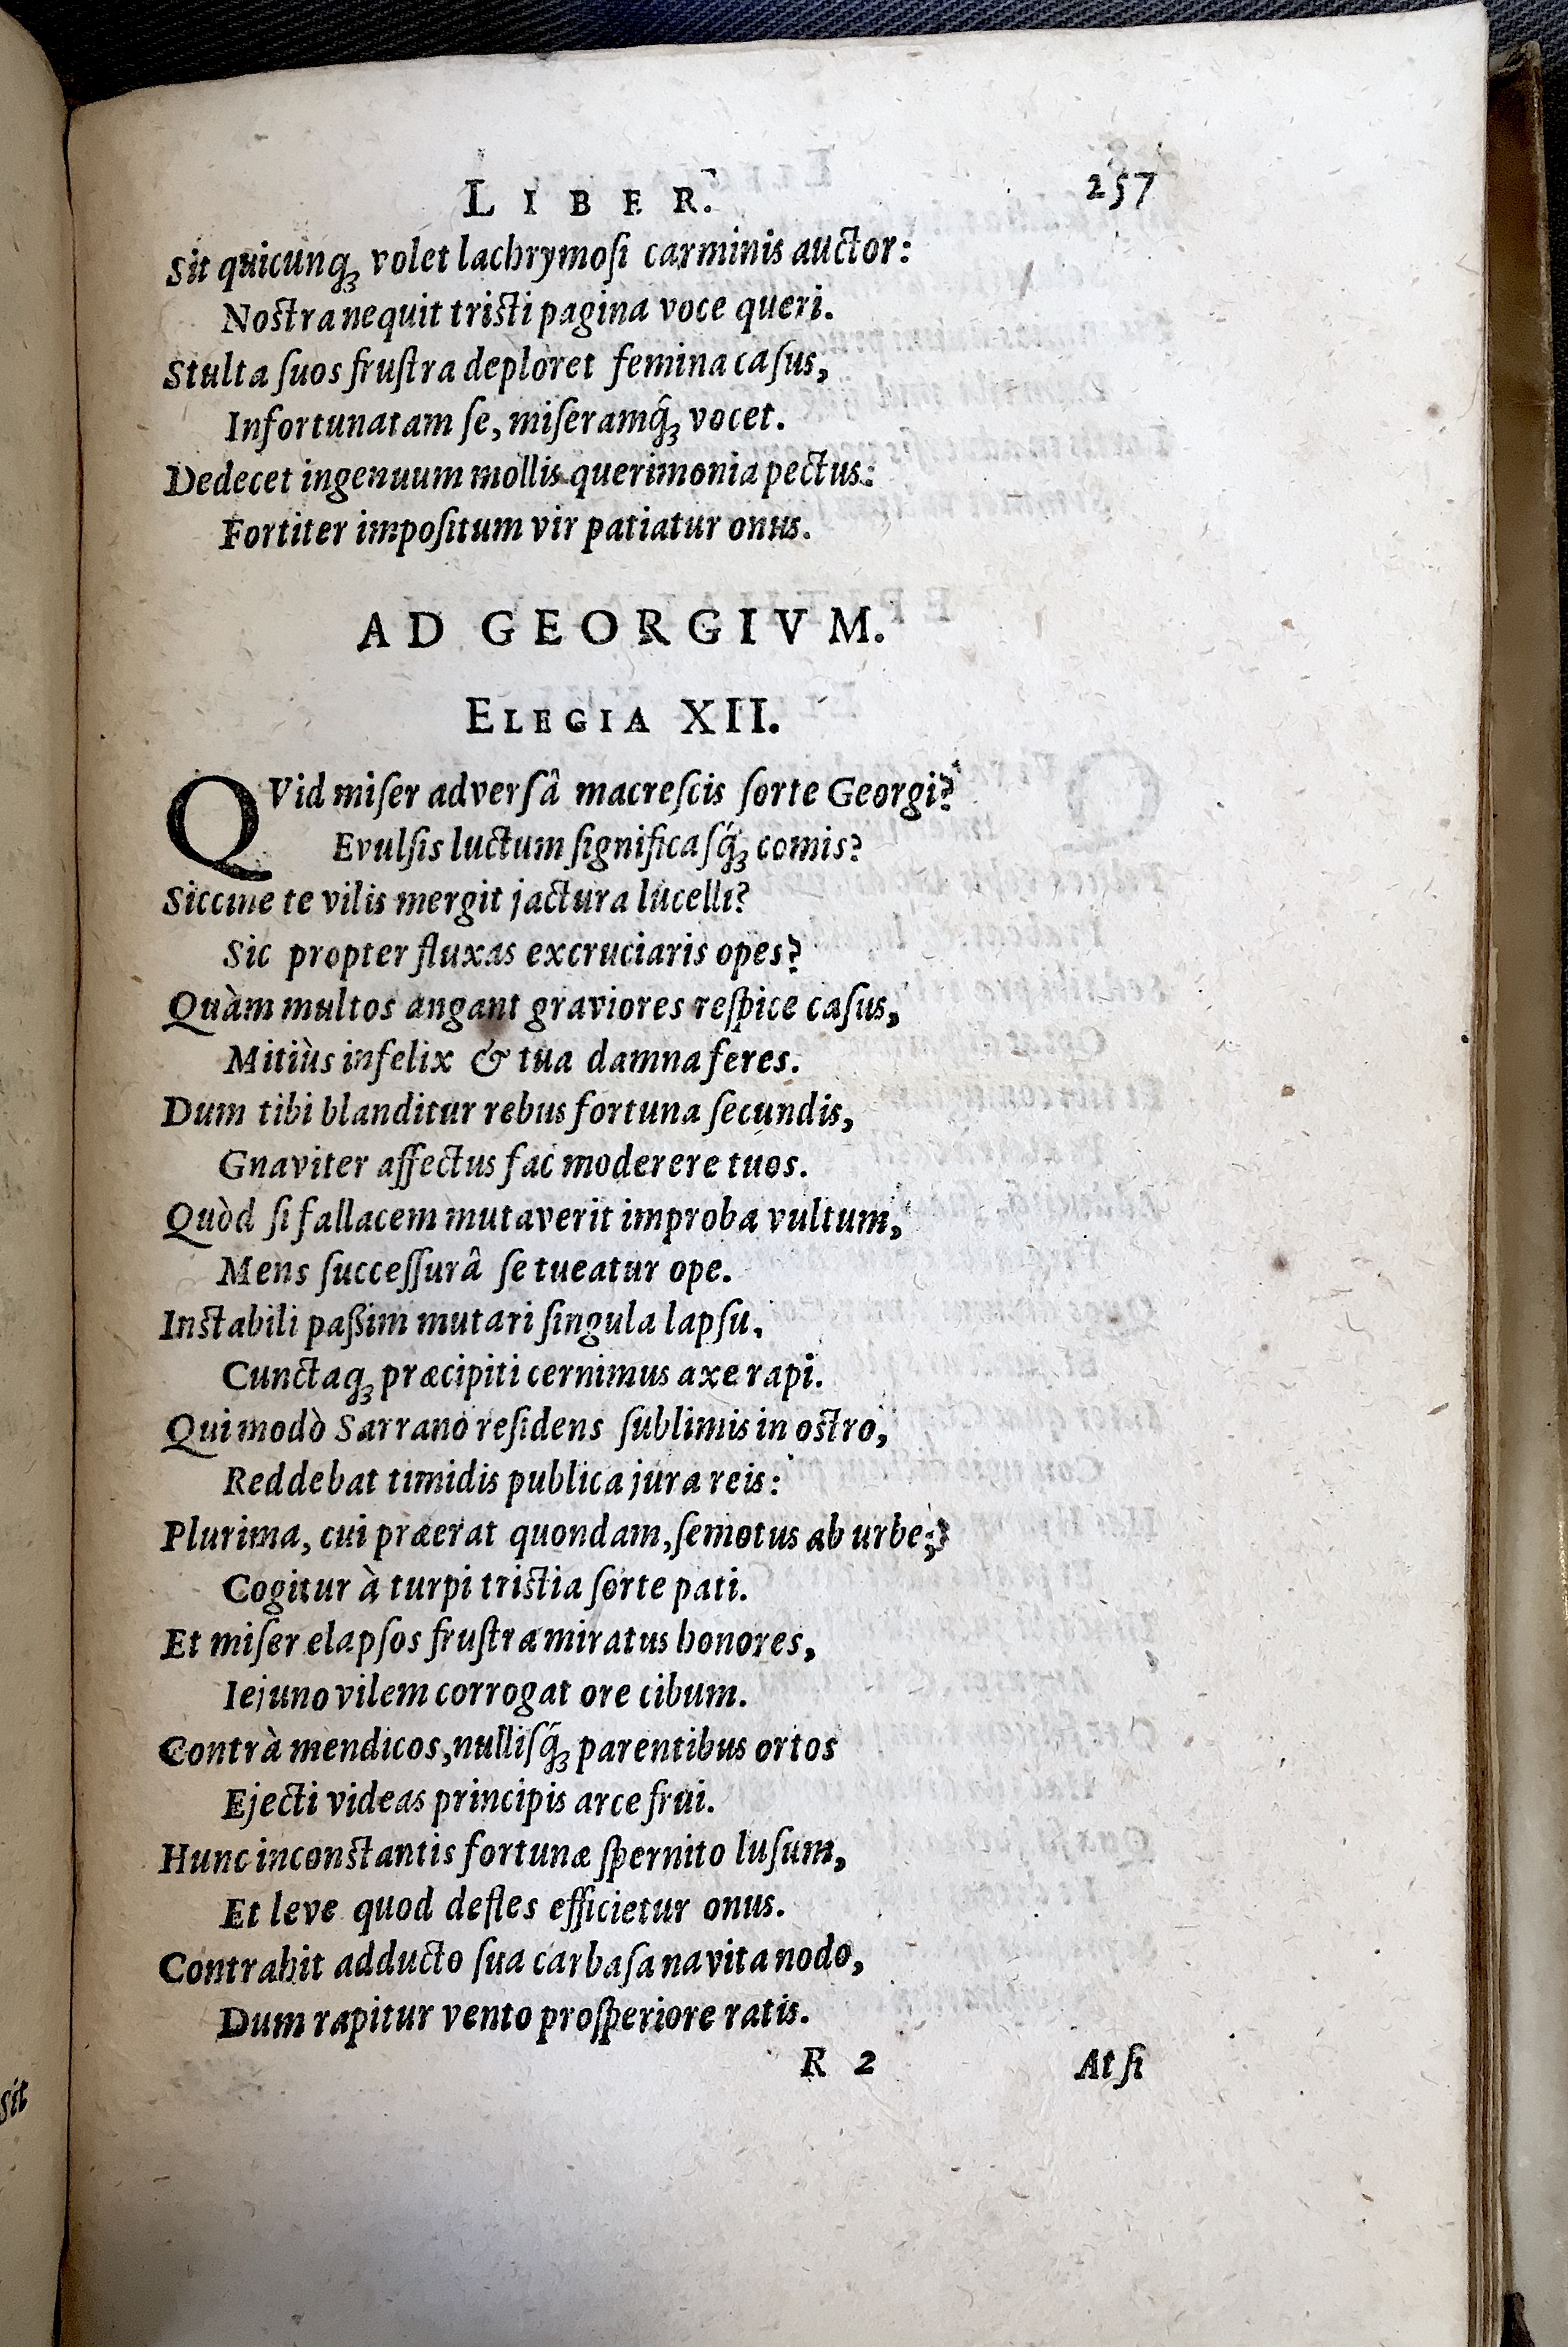 LIBER. 257
Sit quicunq; volet lachrymoſi carminis auctor:
Noſtra nequit triſti pagina voce queri.
Stulta ſuos fruſtra deploret femina caſus,
Infortunatam ſe, miſeramq́; vocet.
Dedecet ingenuum mollis querimonia pectus:
Fortiter impoſitum vir patiatur onus.
AD GEORGIVM.
ELEGIA XII.
QVid miſer adverſâ macreſcis ſorte Georgi?
Evulſis luctum ſignificaſq́; comis?
Siccine te vilis mergit jactura lucelli?
Sic propter fluxas excruciaris opes?
Quàm multos angant graviores reſpice caſus,
Mitiùs infelix & tua damna feres.
Dum tibi blanditur rebus fortuna ſecundis,
Gnaviter affectus fac moderere tuos.
Quòd ſi fallacem mutaverit improba vultum,
Mens ſucceſſurâ ſe tueatur ope.
Inſtabili paßim mutari ſingula lapſu,
Cunctaq; præcipiti cernimus axe rapi.
Qui modò Sarrano reſidens ſublimis in oſtro,
Reddebat timidis publica jura reis:
Plurima, cui præerat quondam, ſemotus ab urbe;
Cogitur à turpi triſtia ſorte pati.
Et miſer elapſos fruſtra miratus honores,
Iejuno vilem corrogat ore cibum.
Contrà mendicos, nulliſq́; parentibus ortos
Ejecti videas principis arce frui.
Hunc inconſtantis fortunæ ſpernito luſum,
Et leve quod defles efficietur onus.
Contrahit adducto ſua carbaſa navita nodo,
Dum rapitur vento proſperiore ratis.
R 2 At ſi
sit